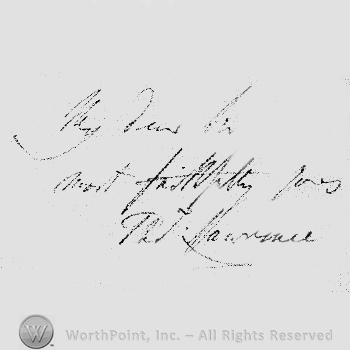 My dear Sir
most faithfully yours
Thos. Lawrence
WorthPoint, Inc. – All Rights Reserved